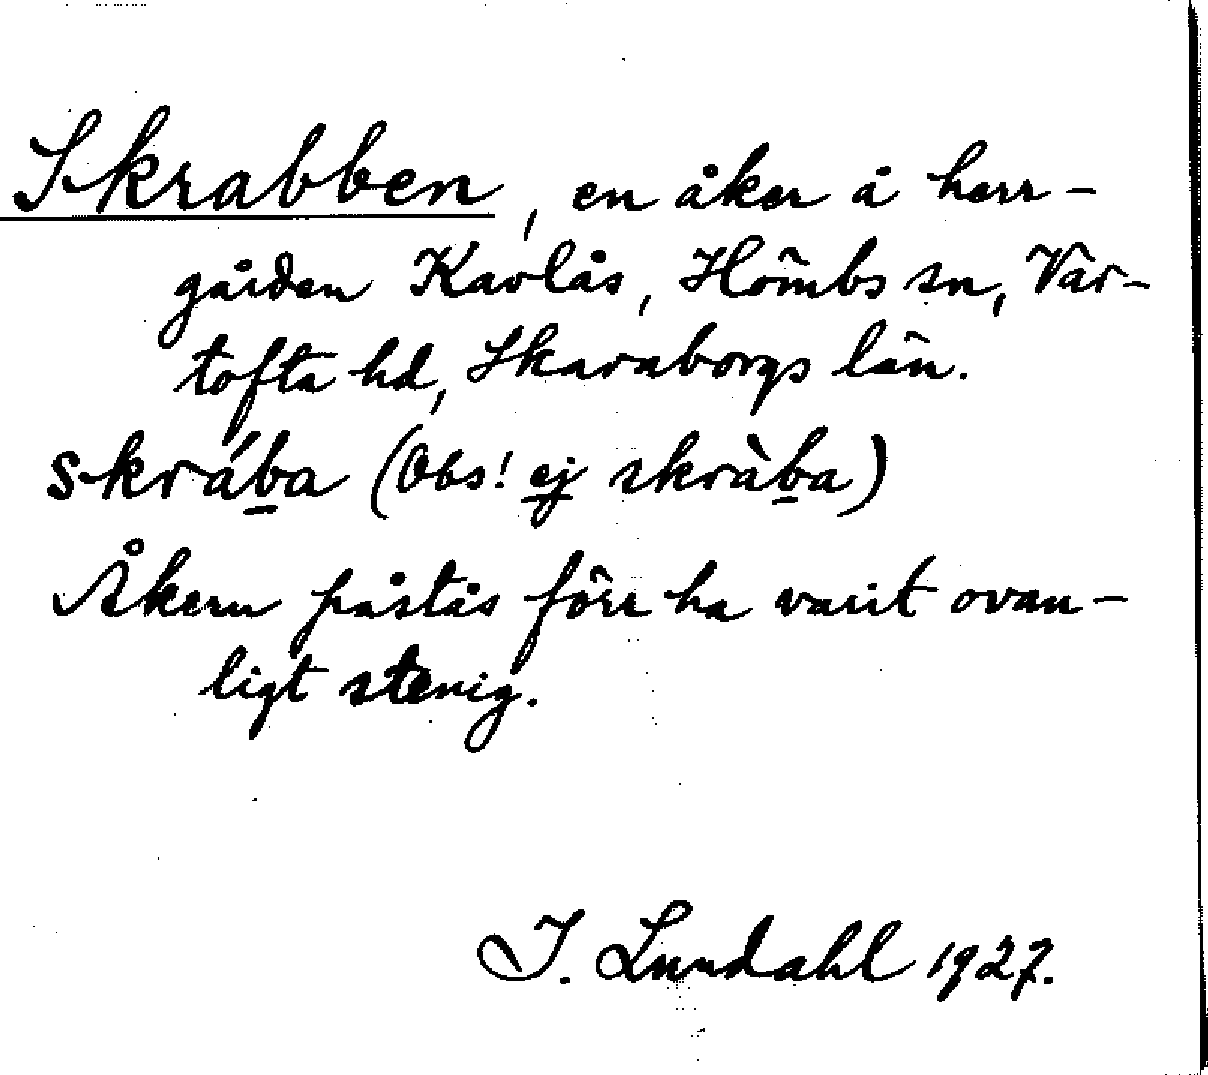 Skrabben, en åker å herr-
gården Kavlås, Hömbs sn, Var-
tofta hd, Skaraborgs län.
skráb̲a (Obs! ej skràb̲a)
Åkern påstås förr ha varit ovan-
ligt stenig.
I. Lundahl 1927.